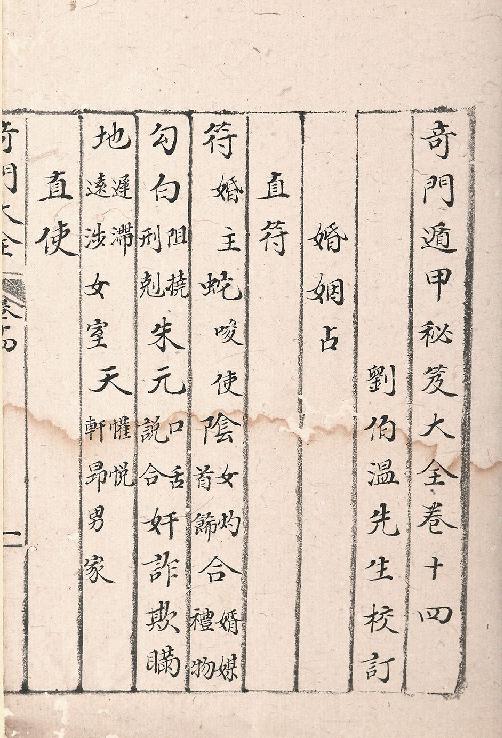 奇門遁甲秘笈大全卷十四
劉伯溫先生校訂
婚姻占
直符
符婚主蛇唆使陰女灼首飾合婚媒禮物
勾白阻撓刑剋朱元口舌說合奸詐欺瞞
地遲滯遠涉女室天懽悦軒昂男家
直使
奇門大全 卷十四 一